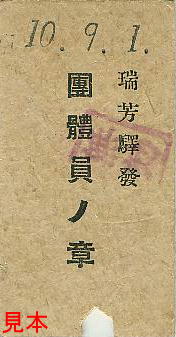 10.9.1.
瑞芳驛發
團體員ノ章
見本